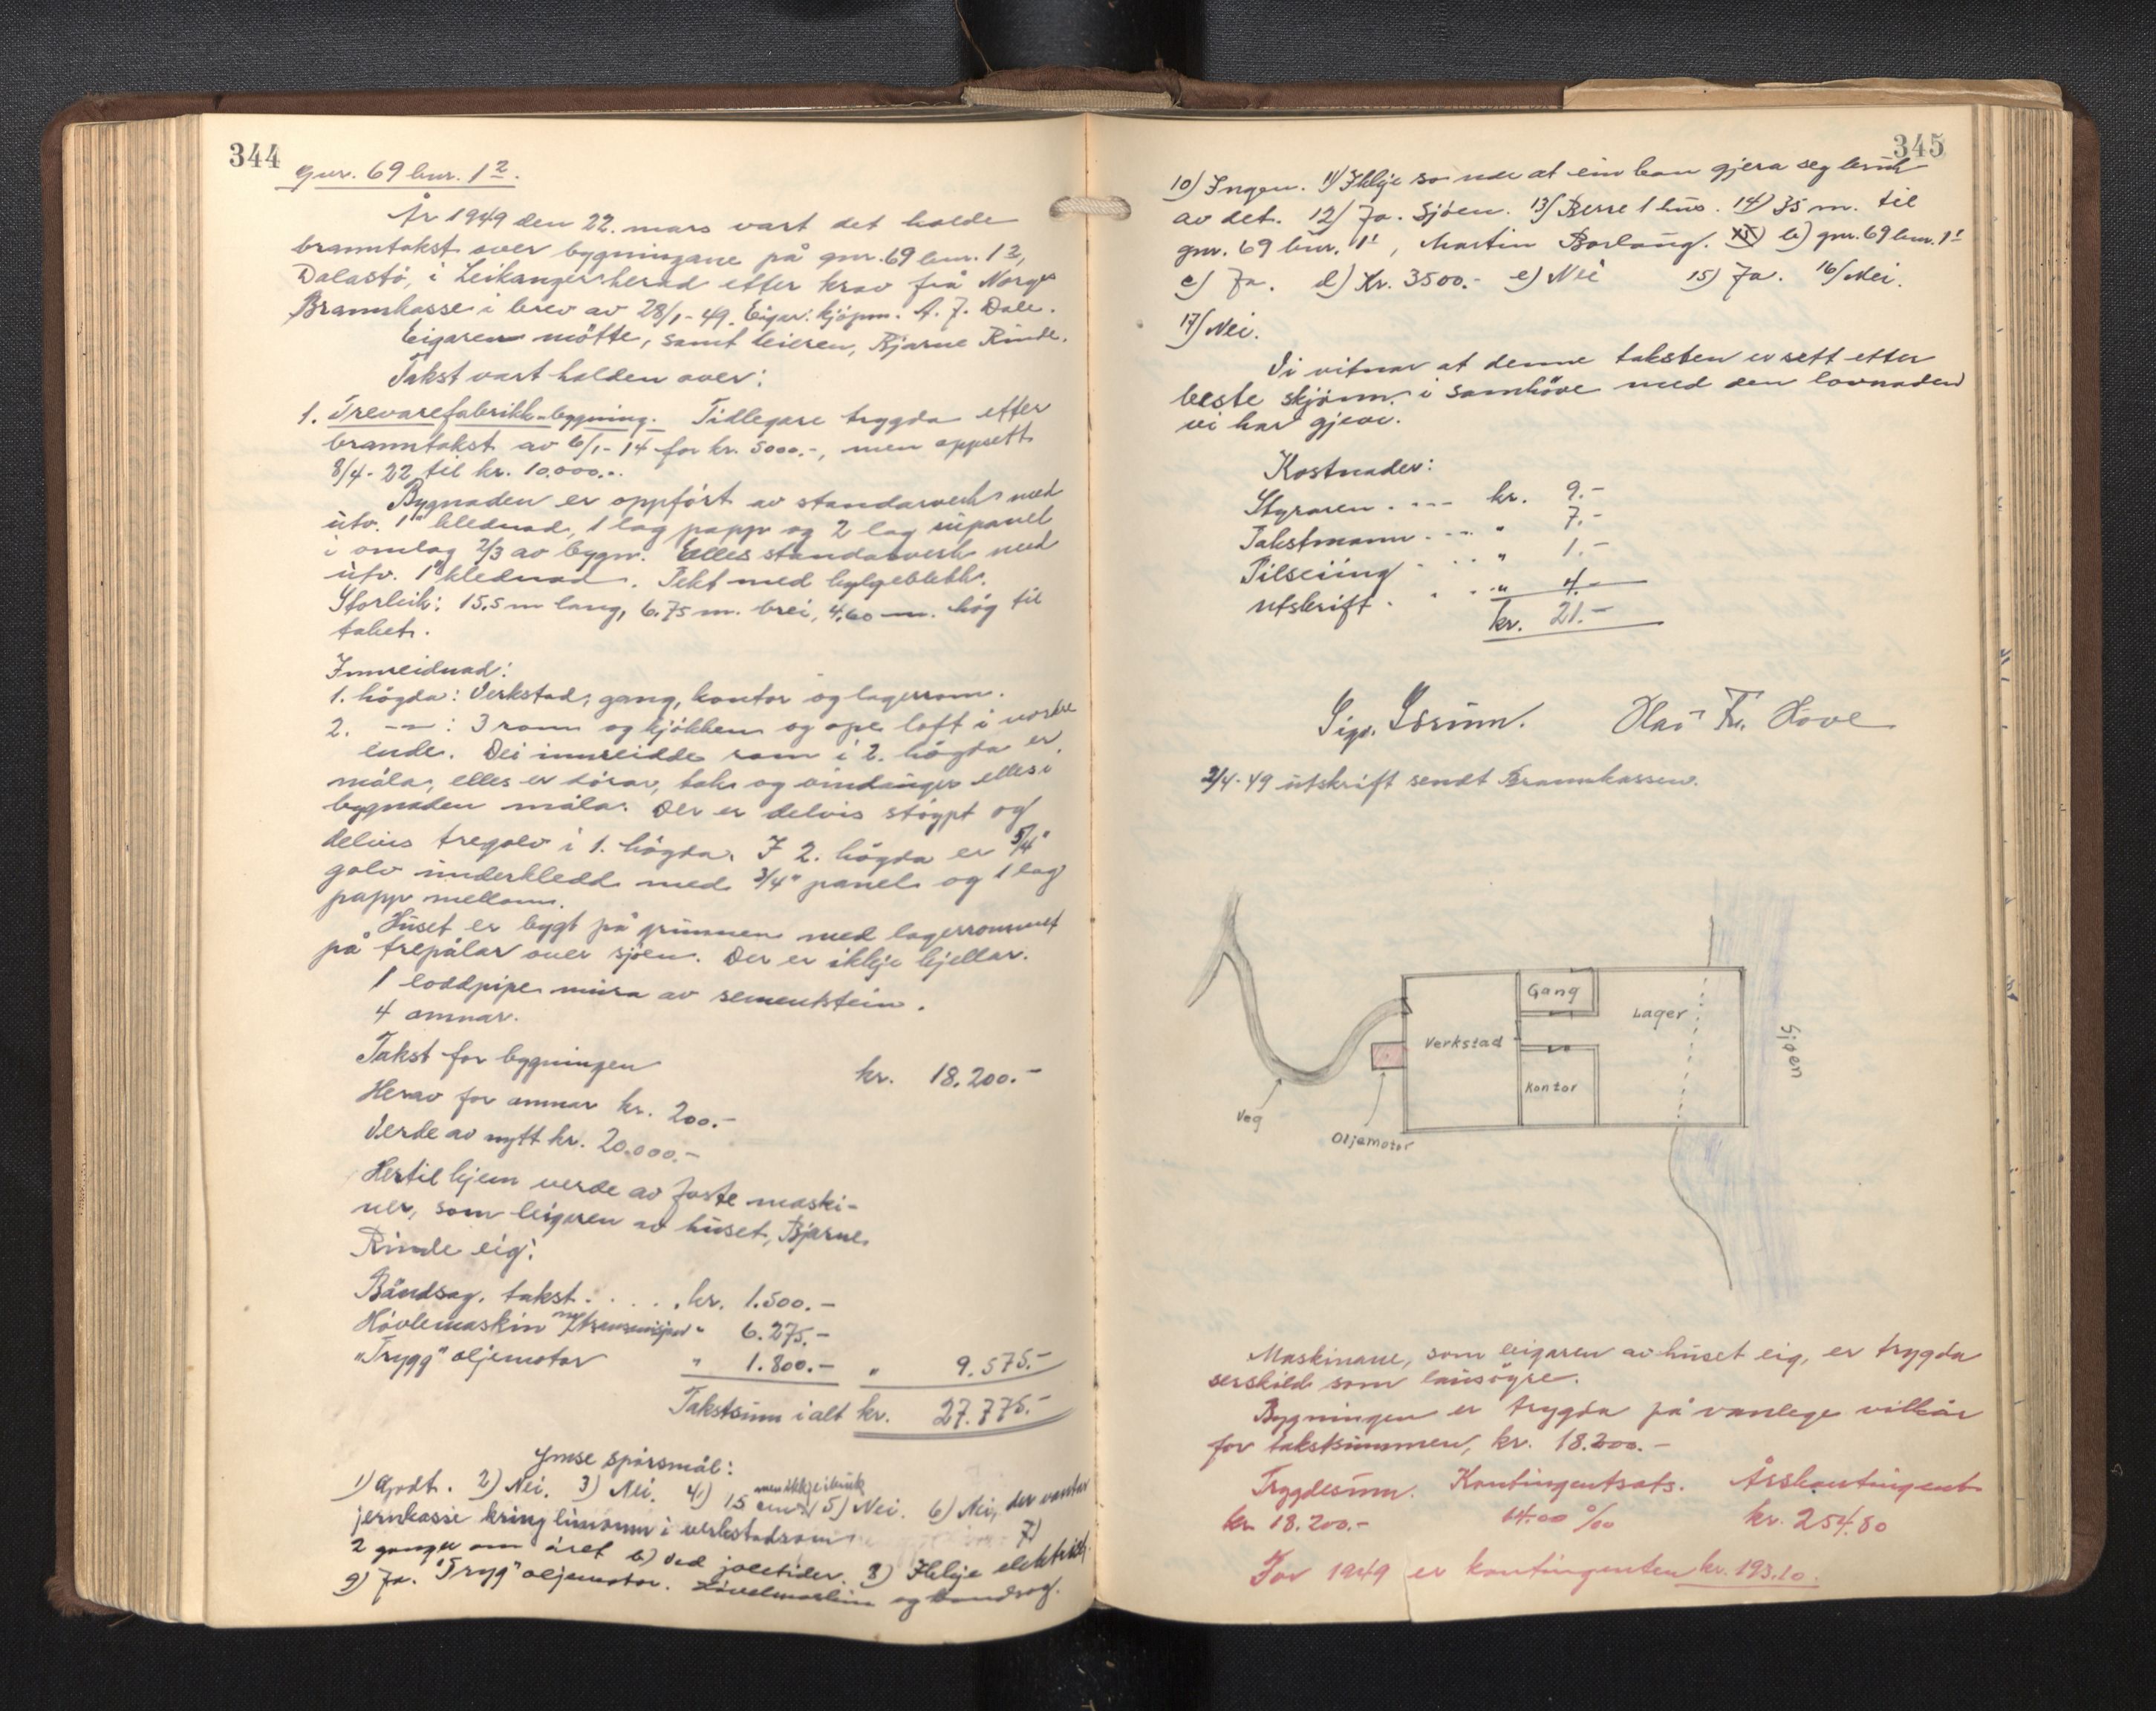 344
gnr. 69 bnr. 1²
År 1949 den 22. mars vart det halde
branntakst over bygningane på gnr. 69 bnr. 1²,
Dalastö, i Leikanger herad etter krav frå Norges
Brannkasse i brev av 28/1-49. Eigar: kjöpm. A. J. Dale.
Eigaren mötte, samt leieren, Bjarne Rinde.
Takst vart halden over:
1. Trevarefabrikk-bygning. Tidlegare trygda etter
branntakst av 6/1-14 for kr. 5000.-, men oppsett
8/4-22 til kr. 10.000.-.
Bygnaden er oppfört av standarverk med
utv. 1" klednad, 1 lag papp og 2 lag inpanel
i omlag 2/3 av bygn. Elles standarverk med
utv. 1" klednad. Tekt med bylgeblekk.
Storleik: 15,5 m lang, 6.75 m. brei, 4,60 m. høg til
taket.
Innreidnad:
1. högda: Verkstad, gang, kontor og lagerrom.
2. -"- : 3 rom og kjökken og ope loft i nordre
ende. Dei innreidde rom i 2. högda er
måla, elles er dörar, tak og vindauger elles i
bygnaden måla. Der er delvis stöypt og
delvis tregolv i 1. högda. I 2. högda er 5/4"
golv underkledd med 3/4" panel og 1 lag
papp mellom.
Huset er bygt på grunnen med lagerrommet
på trepålar over sjöen. Der er ikkje kjellar.
1 loddpipe mura av sementstein.
4 omnar.
Takst for bygningen kr. 18.200.-
Herav for omnar kr. 200.-
Verde av nytt kr. 20.000.-
Hertil kjem verde av faste maski-
ner, som leigaren av huset, Bjarne
Rinde eig:
Bandsag, takst . . . . kr. 1.500.-
Hövlemaskin m/transmisjon " 6.275.-
"Trygg" oljemotor " 1.800.- " 9.575.-
Takstsum i alt kr. 27.775.-
Ymse spörsmål:
men ikkje i bruk
1) Godt. 2) Nei. 3) Nei. 4) 15 cm 5) Nei. 6) Nei, der vantar
jernkasse kring limomn i verkstadrom 7)
2 gonger om året b) ved joletider. 8) Ikkje elektrisk.
9) Ja. "Tryg" oljemotor. Hövelmaskin og bandsag.
345
10) Ingen. 11) Ikkje so nde at ein kan gjera seg bruk
av det. 12) Ja. Sjöen. 13) Berre 1 hus. 14) 35 m. til
gnr. 69 bnr. 1¹, Martin Borlaug. b) gnr. 69 bnr. 1¹
c) Ja. d) Kr. 3500.- e) Nei 15) Ja. 16) Nei.
17) Nei.
Vi vitnar at denne taksten er sett etter
beste skjönn i samhöve med den lovnaden
vi har gjeve.
Kostnader:
Styraren . --- kr. 9.-
Takstmann . --. " 7.-
Tilseiing . . . " 1.-
Utskrift . . . " 4.-
kr. 21.-
Sign. Olav Tr. Hove
2/4-49 utskrift sendt Brannkassen.
Gang
Lager
Verkstad
Kontor
Sjøen
Veg
Oljemotor
Maskinane, som eigaren av huset eig, er trygda
serskild som lausögre.
Bygningen er trygda på vanlege vilkår
for takstsummen, kr. 18.200.-
Trygdesum. Kontingentsats. Årskontingent
kr. 18.200.- 14.00 ‰ kr. 254.80
For 1949 er kontingenten kr. 193.10.